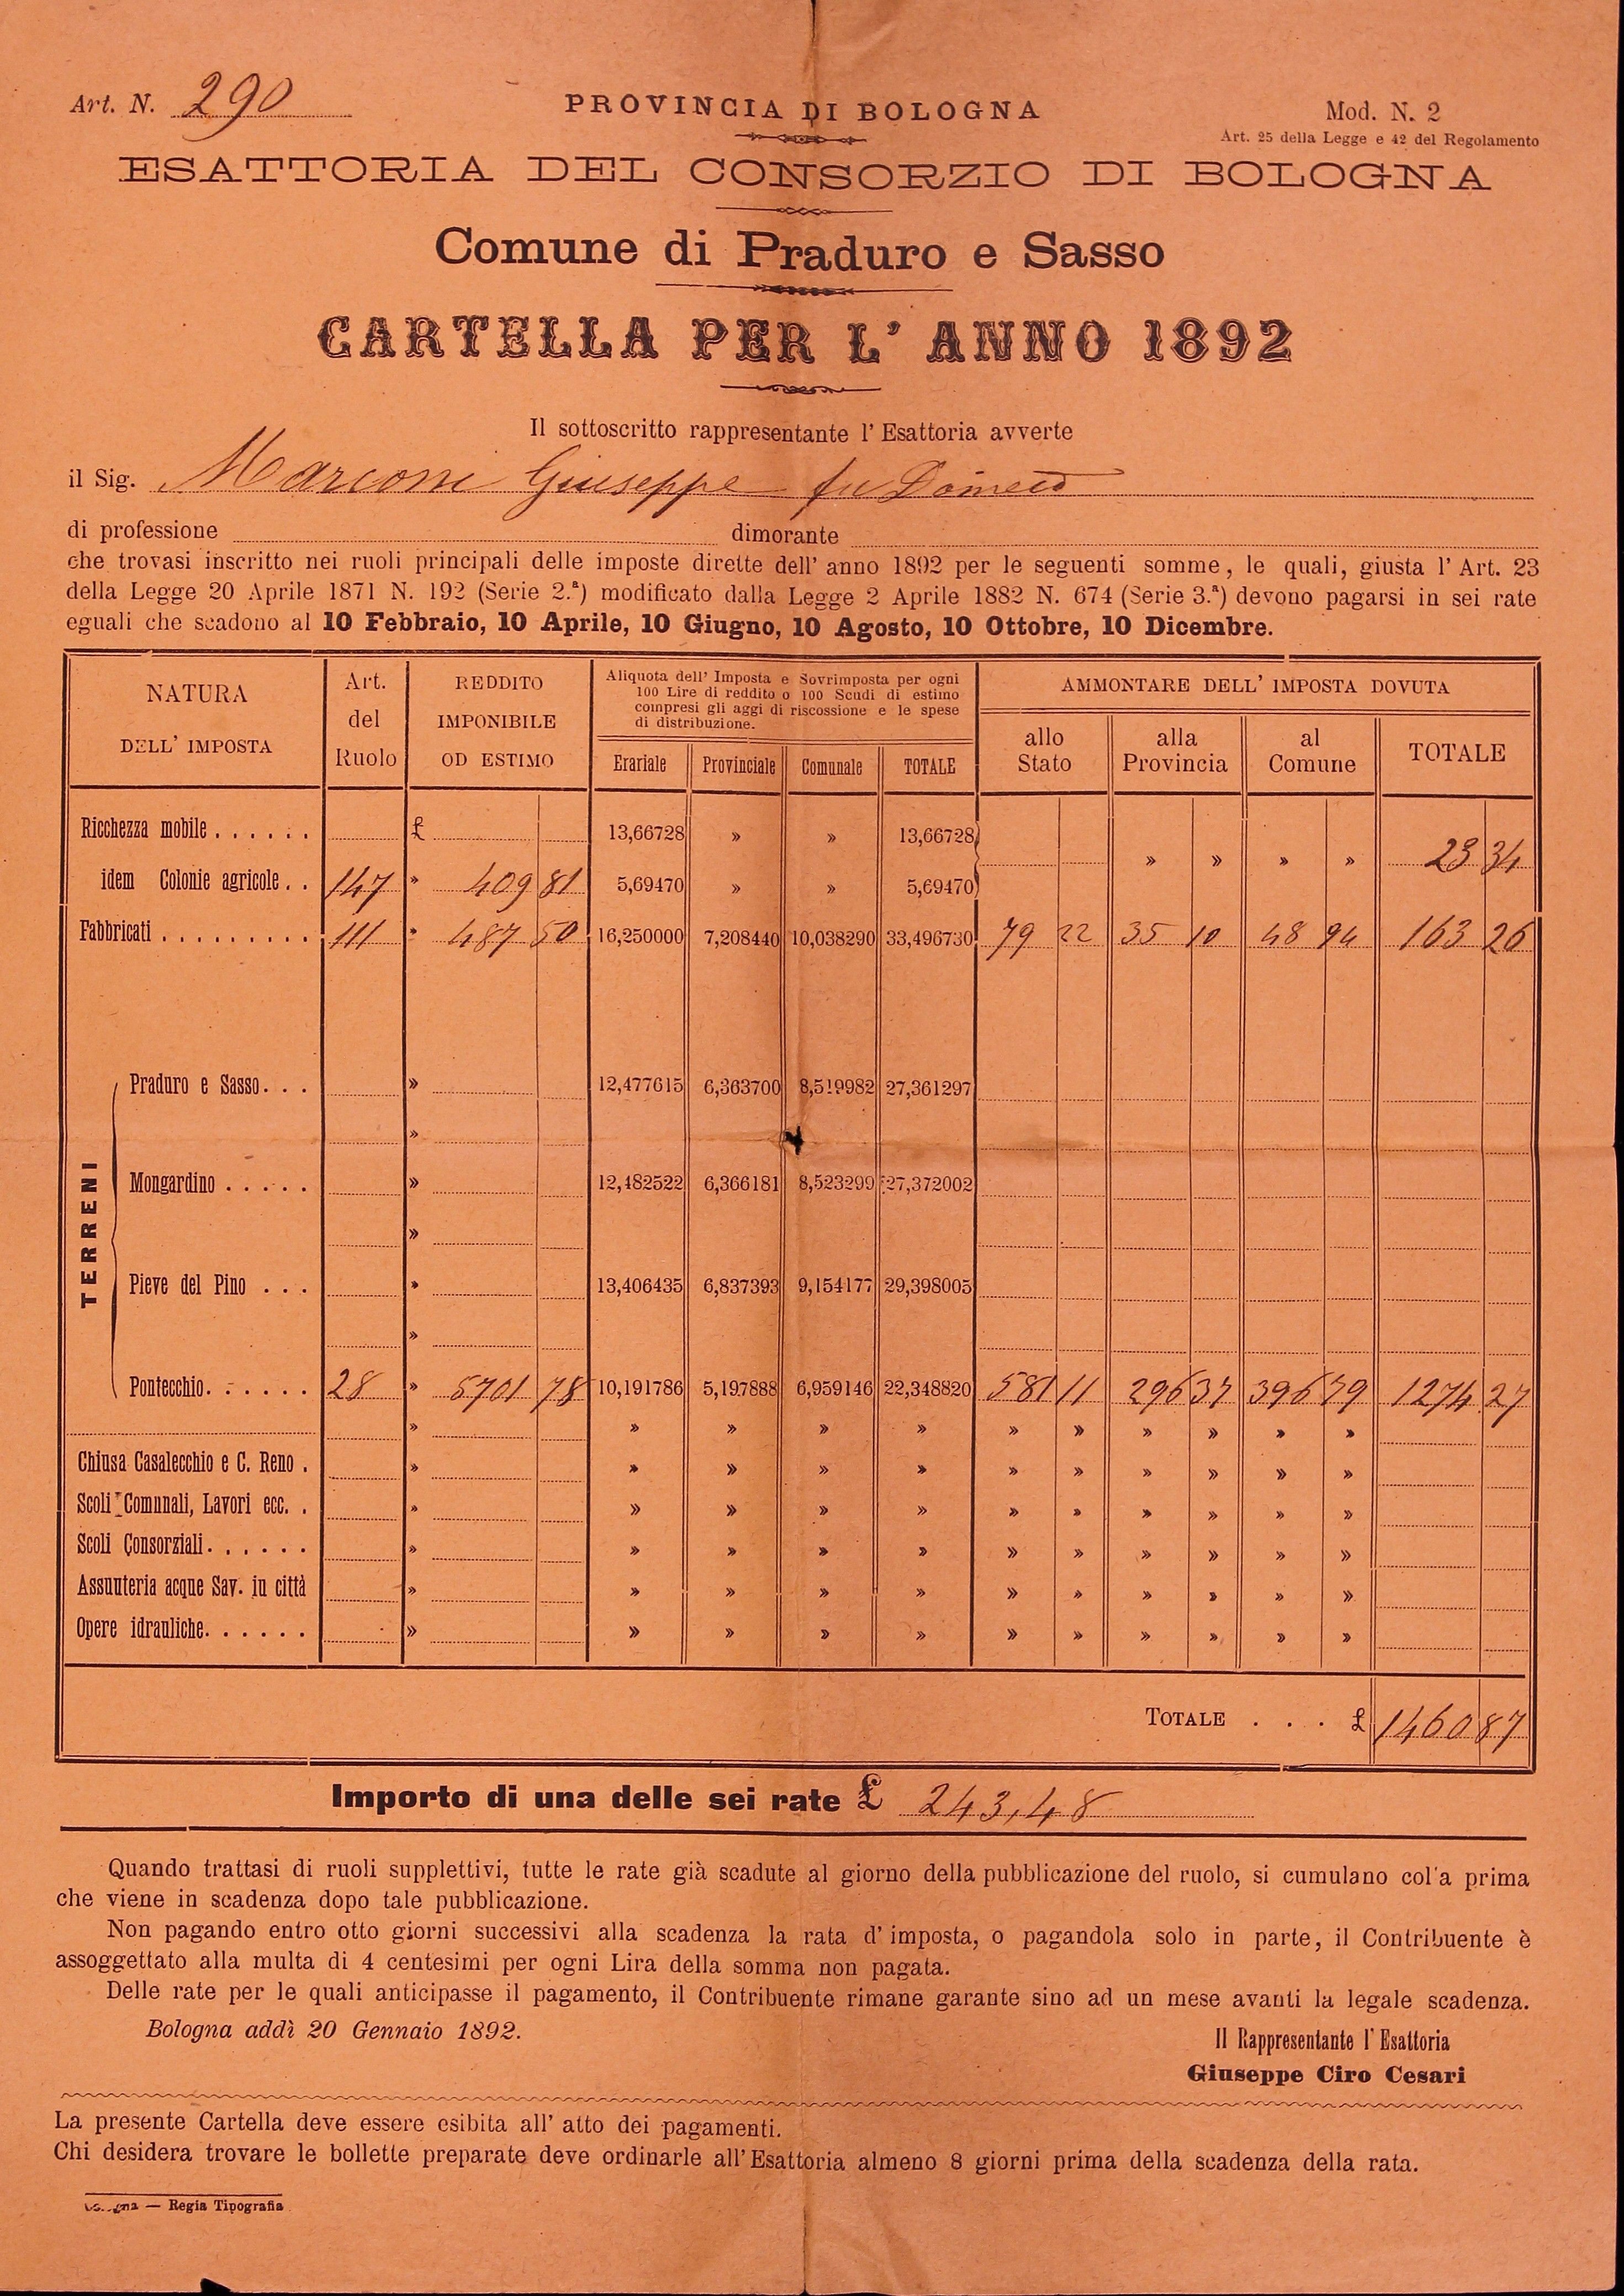 Art. N. 290
PROVINCIA DI BOLOGNA
Mod. N. 2
Art. 25 della Legge e 42 del Regolamento
ESATTORIA DEL CONSORZIO DI BOLOGNA
Comune di Praduro e Sasso
CARTELLA PER L' ANNO 1892
Il sottoscritto rappresentante l' Esattoria avverte
il Sig. Marconi Giuseppe fu Domeco
di professione dimorante
che trovasi inscritto nei ruoli principali delle imposte dirette dell' anno 1892 per le seguenti somme, le quali, giusta l' Art. 23
della Legge 20 Aprile 1871 N. 192 (Serie 2.ª) modificato dalla Legge 2 Aprile 1882 N. 674 (Serie 3.ª) devono pagarsi in sei rate
eguali che scadono al 10 Febbraio, 10 Aprile, 10 Giugno, 10 Agosto, 10 Ottobre, 10 Dicembre.
NATURA DELL' IMPOSTA
Art. del Ruolo
REDDITO IMPONIBILE OD ESTIMO
Aliquota dell' Imposta e Sovrimposta per ogni
100 Lire di reddito o 100 Scudi di estimo
compresi gli aggi di riscossione e le spese
di distribuzione.
AMMONTARE DELL' IMPOSTA DOVUTA
Erariale Provinciale Comunale TOTALE
allo Stato alla Provincia al Comune TOTALE
Ricchezza mobile . . . . . . £ 13,66728 » » 13,66728
idem Colonie agricole . . 147 » 409 81 5,69470 » » 5,69470 » » » » 23 34
Fabbricati . . . . . . . . . 111 » 487 50 16,250000 7,208440 10,038290 33,496730 79 22 35 10 48 94 163 26
TERRENI
Praduro e Sasso. . . » 12,477615 6,363700 8,519982 27,361297
»
Mongardino . . . . . » 12,482522 6,366181 8,523299 27,372002
»
Pieve del Pino . . . » 13,406435 6,837393 9,154177 29,398005
»
Pontecchio. . . . . . 28 » 5701 78 10,191786 5,197888 6,959146 22,348820 581 11 296 37 396 79 1274 27
» » » » » » » » » » »
Chiusa Casalecchio e C. Reno . » » » » » » » » » » »
Scoli Comunali, Lavori ecc. . » » » » » » » » » » »
Scoli Consorziali. . . . . . » » » » » » » » » » »
Assunteria acque Sav. in città » » » » » » » » » » »
Opere idrauliche. . . . . . » » » » » » » » » » »
TOTALE . . . £ 1460 87
Importo di una delle sei rate £ 243,48
Quando trattasi di ruoli supplettivi, tutte le rate già scadute al giorno della pubblicazione del ruolo, si cumulano col'a prima
che viene in scadenza dopo tale pubblicazione.
Non pagando entro otto giorni successivi alla scadenza la rata d' imposta, o pagandola solo in parte, il Contribuente è
assoggettato alla multa di 4 centesimi per ogni Lira della somma non pagata.
Delle rate per le quali anticipasse il pagamento, il Contribuente rimane garante sino ad un mese avanti la legale scadenza.
Bologna addì 20 Gennaio 1892.
Il Rappresentante l' Esattoria
Giuseppe Ciro Cesari
La presente Cartella deve essere esibita all' atto dei pagamenti.
Chi desidera trovare le bollette preparate deve ordinarle all' Esattoria almeno 8 giorni prima della scadenza della rata.
— Regia Tipografia